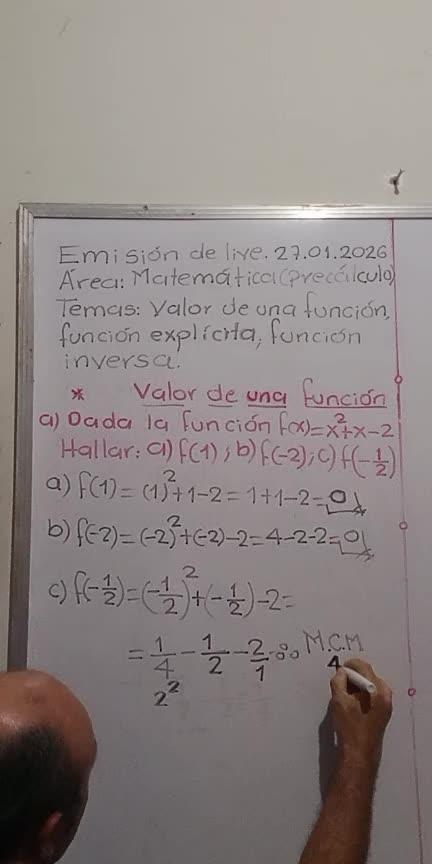 Emisión de live. 27.01.2026
Área: Matemática(precálculo)
Temas: Valor de una función,
función explícita, función
inversa.
* Valor de una función
a) Dada la función f(x)=x²+x-2
Hallar: a) f(1); b) f(-2); c) f(-1/2)
a) f(1) = (1)²+1-2 = 1+1-2=0
b) f(-2) = (-2)²+(-2)-2=4-2-2=0
c) f(-1/2)=(-1/2)²+(-1/2)-2=
= 1/4 - 1/2 - 2/1 ∴ M.C.M
2² 4